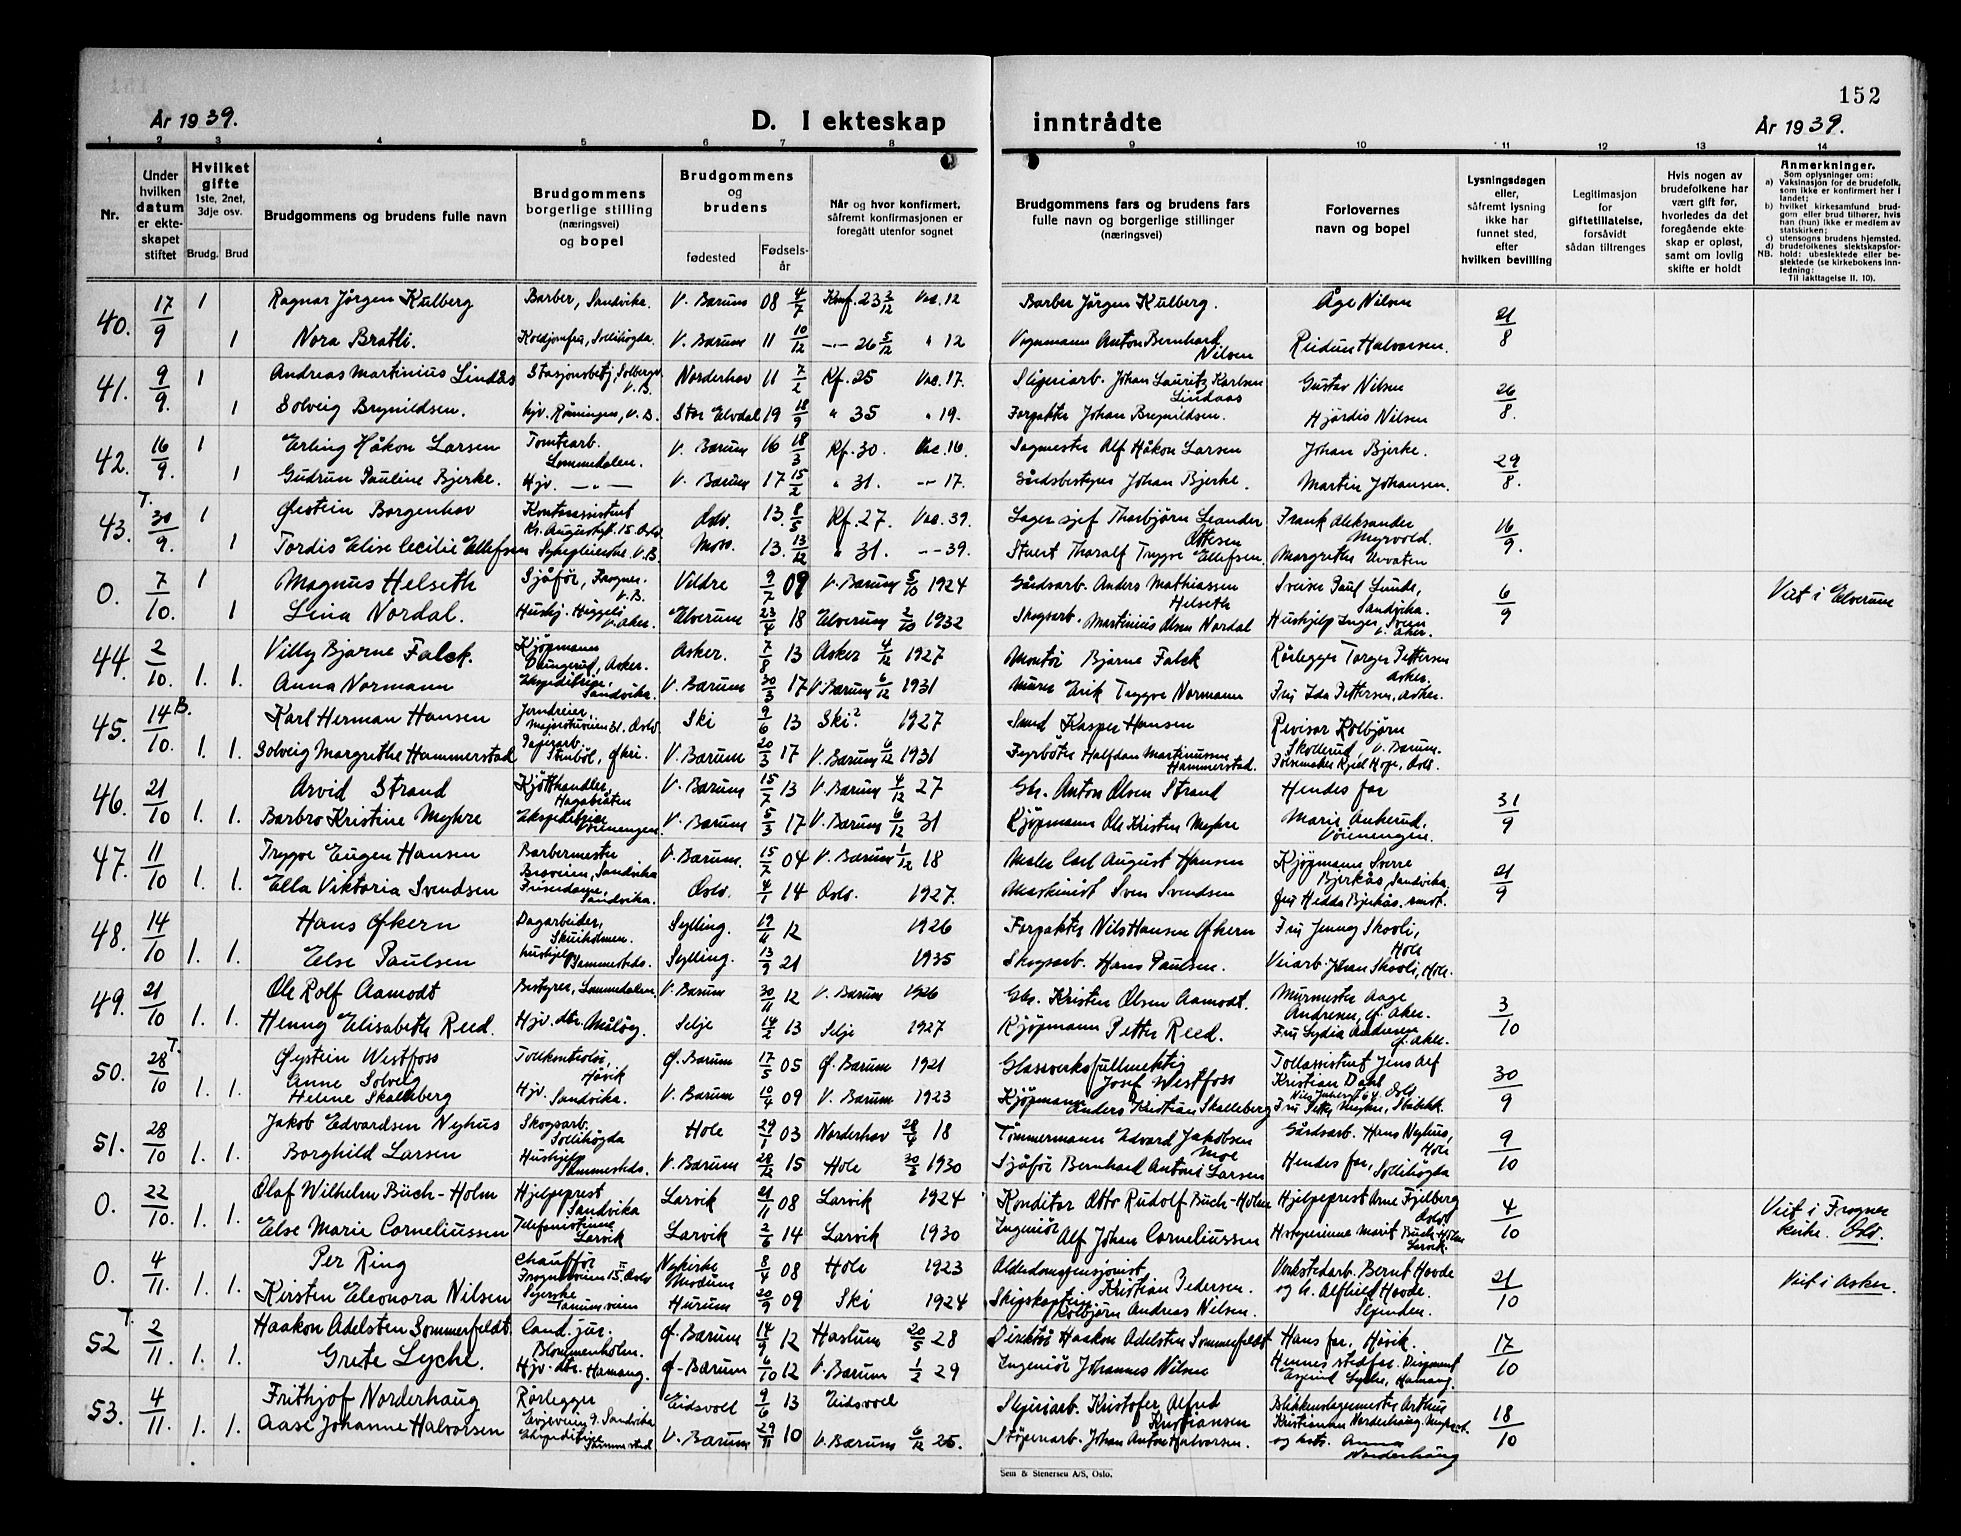 152
År 1939.
D. I ekteskap inntrådte
År 1939.
1 2 3 4 5 6 7 8 9 10 11 12 13 14
Nr.
Under hvilken datum er ekteskapet stiftet
Hvilket gifte 1ste, 2net, 3dje osv.
Brudg. Brud
Brudgommens og brudens fulle navn
Brudgommens borgerlige stilling (næringsvei) og bopel
Brudgommens og brudens
fødested
Fødsels-år
Når og hvor konfirmert, såfremt konfirmasjonen er foregått utenfor sognet
Brudgommens fars og brudens fars fulle navn og borgerlige stillinger (næringsvei)
Forlovernes navn og bopel
Lysningsdagen eller, såfremt lysning ikke har funnet sted, efter hvilken bevilling
Legitimasjon for giftetillatelse, forsåvidt sådan tiltrenges
Hvis nogen av brudefolkene har vært gift før, hvorledes da det foregående ekteskap er opløst, samt om lovlig skifte er holdt
Anmerkninger.
Som oplysninger om:
a) Vaksinasjon for de brudefolk, som ikke er konfirmert her i landet;
b) hvilket kirkesamfund brudgom eller brud tilhører, hvis han (hun) ikke er medlem av statskirken;
c) utensogns brudens hjemsted.
d) brudefolkenes slektskapsforhold: ubeslektede eller beslektede (se kirkebokens innledning:
NB. Til iakttagelse II. 10).
40. 17/9 1 Ragnar Jörgen Kulberg Barber, Sandvika. V. Bærum 08 4/7 Konf. 23 2/12 Vac. 12 Barber Jörgen Kulberg. Åge Nilsen 21/8
1 Nora Bratli. Sollihögda. V. Bærum 11 10/12 26 5/12 " 12 Anton Bernhard Nilsen Reidun Halvorsen.
41. 9/9 1 Andreas Martinius Lindås Stasjonsbetj. Solberg V.B. Norderhov 11 7/2 Kf. 25 Vac. 17. Sliperiarb. Johan Lauritz Karlsen Lindaas Gustav Nilsen 26/8.
1 Solveig Brynildsen. hjv. Rönningen, V.B. Stor Elvdal 19 18/9 " 35 " 19. Forpakter Johan Brynildsen. Hjördis Nilsen
42. 16/9. 1 Erling Håkon Larsen Tomtearb. Lommedalen. V. Bærum 16 18/3 Kf. 30. Vac. 16. Sagmester Alf Håkon Larsen Johan Bjerke. 29/8.
1 Gudrun Pauline Bjerke. Hjv. — „ — V. Bærum 17 15/2 " 31. — 17. Gårdsbestyrer Johan Bjerke. Martin Johansen.
43. T. 30/9. 1 Östein Borgenhov Kontorassistent Kr. Augustsgt. 15. Oslo Oslo. 13. 8/5 Kf. 27. Vac. 39. Lager sjef Thorbjörn Leander Ottesen Frank Aleksander Myrvold. 16/9.
1 Tordis Elise Cecilie Ellefsen V.B. Moss. 13. 13/12 " 31. -- 39. Thoralf Trygve Ellefsen. Margrethe
0. 7/10. 1 Magnus Helseth Sjåför, Frogner. V.B. Vildre 9/7 09 V. Bærum 5/10 1924 Gårdsarb. Anders Mathiassen Helseth Sveiser Paul Lunde, Sandvika. 6/9 Viet i Elverum
1 Lina Nordal. Hushj. V. Aker. Elverum 23/4 18 Elverum 2/10 1932 Skogsarb. Martinius Olsen Nordal Hushjelp Inger Sveen V. Aker.
44. 2/10. 1. Villy Bjarne Falck. Kjöpmann Asker. Asker. 7/8 13 Asker 4/12 1927 Montör Bjarne Falck Rörlegger Torger Pettersen Asker.
1. Anna Normann Ekspeditrise, Sandvika. V. Bærum 30/3 17 V. Bærum 6/12 1931 Murer Erik Trygve Normann Fru Ida Pettersen, Asker.
45. 14/10. B. 1. Karl Herman Hansen Jerndreier Majorstuveien 31. Oslo Ski 9/6 13 Ski? 1927 Kasper Hansen Revisor Kolbjörn Skollerud, V. Bærum.
1. Solveig Margrethe Hammerstad Papirarb. V. Bærum 20/3 17 V. Bærum 6/12 1931 Fyrböter Halfdan Martinussen Hammerstad. Oslo.
46. 21/10 1. Arvid Strand Kjötthandler, Hagabråten V. Bærum 15/7 13 V. Bærum 4/12 27 Gbr. Anton Olsen Strand Hendes far 31/9
1. Barbro Kristine Myhre Ekspeditrise Vöienengen. V. Bærum 5/3 17 V. Bærum 6/12 31 Kjöpmann Ole Kristen Myhre Marie Ankerud. Vöienengen.
47. 11/10 1. Trygve Eugen Hansen Barbermester Sandvika V. Bærum. 15/7 04 V. Bærum 1/12 18 Maler Carl August Hansen Kjöpmann Sverre Bjerkås, Sandvika. 21/9
1. Ella Viktoria Svendsen Frisedame, Sandvika. Oslo. 4/1 14 Oslo. 1927. Maskinist Sven Svendsen Fru Hedda Bjerkås. smst.
48. 14/10 1. Hans Økern Dagarbeider, Skuiholmen. Sylling. 19/11 12 1926 Forpakter Nils Hansen Økern Fru Jenny Skovli, Hole
1. Else Paulsen hushjelp Sylling. 13/9 21 1935 Skogsarb. Hans Paulsen. Veiarb. Johan Skovli, Hole.
49. 21/10 1. Ole Rolf Aamodt Bestyrer, Lommedalen. V. Bærum 30/11 12 V. Bærum 1926 Gbr. Kristen Olsen Aamodt. Murmester Aage Andresen, Ö. Aker. 3/10
1. Henny Elisabeth Reed. Hjv. dtr. Målöy. Selje 14/2 13 Selje 1927 Kjöpmann Petter Reed. Fru Lydia Andresen Ö. Aker.
50. 28/10 T. 1. Øystein Westfoss Tollkontrolör, Hövik Ø. Bærum 17/5 05 Ø. Bærum 1921 Glassverksfullmektig Josef Westfoss Tollassistent Jens Alf Kristian Dahl Oslo 30/9
1. Anne Solveig Helene Skalleberg Hjv. Sandvika. V. Bærum 10/4 09 V. Bærum 1923 Kjöpmann Anders Kristian Skalleberg Fru Myhre, Stabekk.
51. 28/10 1. Jakob Edvardsen Nyhus Skogsarb. Sollihögda Hole 29/1 03 Norderhov 28/4 18 Tömmermann Edvard Jakobsen Moe Gårdsarb. Hans Nyhus, Hole 9/10
1. Borghild Larsen Hushjelp V. Bærum 28/12 15 Hole 30/3 1930 Sjåför Bernhard Antoni Larsen Hendes far, Sollihögda
0. 22/10. 1. Olaf Wilhelm Buch-Holm Hjelpeprest Sandvika Larvik 21/11 08 Larvik 1924 Konditor Otto Rudolf Buch-Holm Hjelpeprest Arne Fjelberg Oslo 4/10 Viet i Frogner kirke. Oslo.
1. Else Marie Corneliussen Telefonistinne Larvik Larvik 2/6 14 Larvik 1930 Ingeniör Alf Johan Corneliussen Marit Buch-Holm Larvik.
0. 4/11. 1. Per Ring Chaufför Frognerveien 15. II Oslo Nykirke Modum 8/4 08 Hole 1923 Alderdomspensjonist, Kristian Pedersen. Verkstedarb. Bernt Hovde og h. Alfhild Hovde. Slependen. 21/10 Viet i Asker.
1. Kirsten Eleonora Nilsen Syerske Tanumveien Hurum 20/9 09 Ski 1924 Skipskaptein Kolbjörn Andreas Nilsen.
52 T. 2/11. 1. Haakon Adelsten Sommerfeldt. Cand. jur. Blommenholm. Ø. Bærum 14/9 12 Haslum 20/5 28 Direktör Haakon Adelsten Sommerfeldt Hans far, Hövik. 17/10
1. Grete Lyche. Hjv. dtr. Hamang. Ø. Bærum 6/10 12 V. Bærum 1/2 29 Ingeniör Johannes Nilsen Hennes stedfar. Lyche, Hamang.
53. 4/11. 1. Frithjof Norderhaug Rörlegger Sandvika Eidsvoll 9/6 13 Eidsvoll Sliperiarb. Kristofer Alfred Kristiansen Blikkenslagermester Arthur Kristiansen Norderhaug. 18/10
1. Aase Johanne Halvorsen Ekspeditrise V. Bærum 29/11 10 V. Bærum 6/12 25. Johan Anton Halvorsen. og Anna Norderhaug
Sem & Stenersen A/S, Oslo.